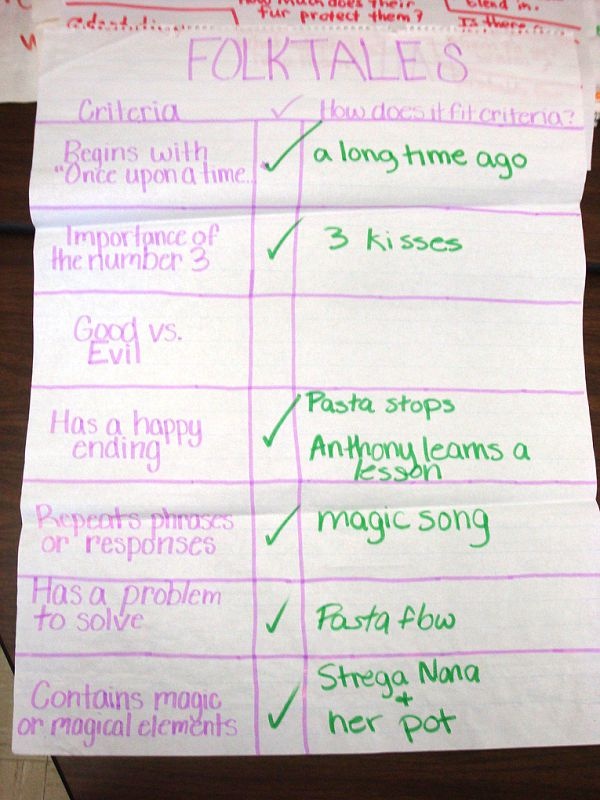 fur protect them?
blend in.
FOLKTALES
Criteria ✓ How does it fit criteria?
Begins with
"Once upon a time..
✓ a long time ago
Importance of
the number 3
✓ 3 kisses
Good vs.
Evil
Has a happy
ending
✓ Pasta stops
Anthony learns a
lesson
Repeats phrases
or responses
✓ magic song
Has a problem
to solve
✓ Pasta flow
Contains magic
or magical elements
✓ Strega Nona
+
her pot